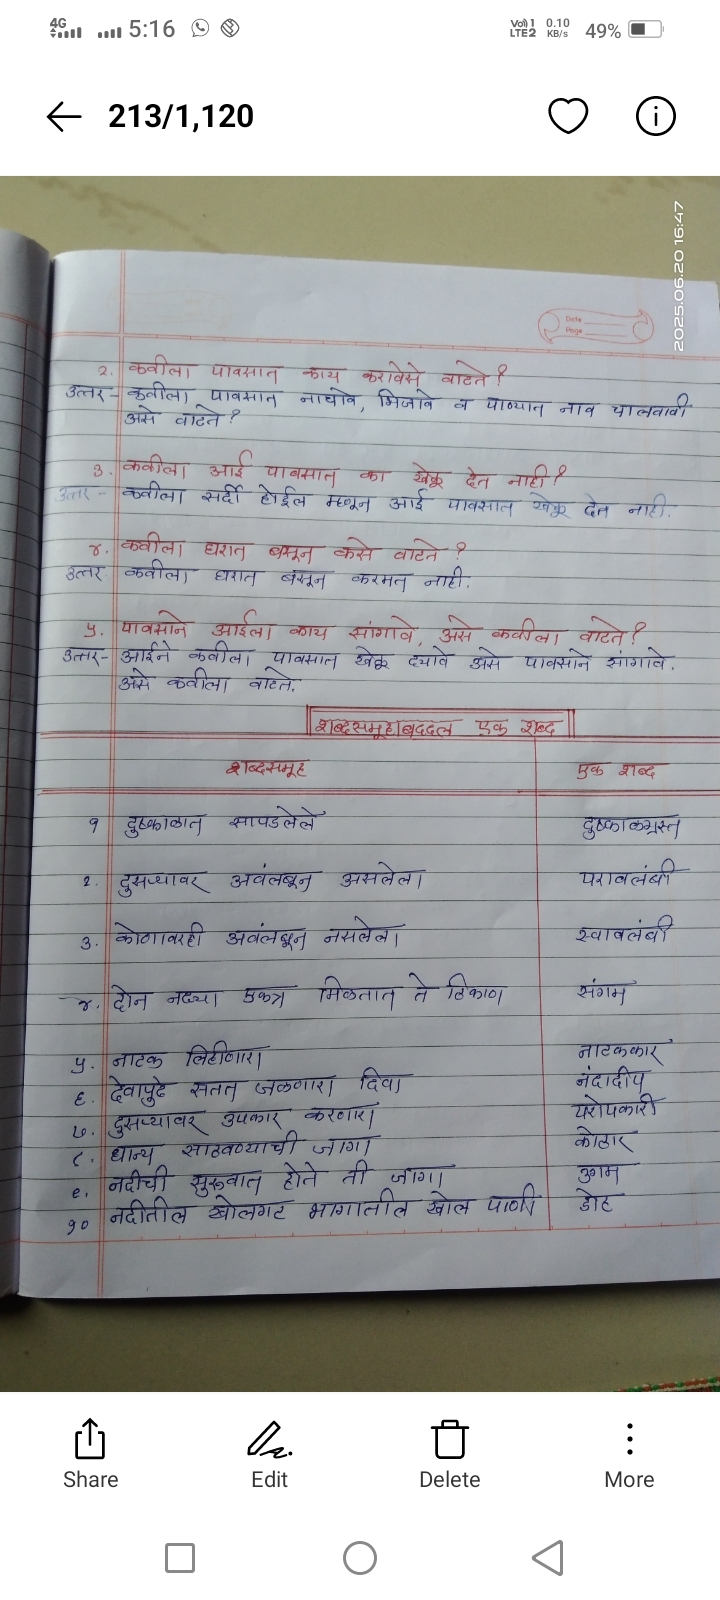 4G 5:16 Vo)) 1 LTE2 0.10 KB/s 49%
213/1,120
2025.06.20 16:47
Date
Page
२. कवीला पावसात काय करावेसे वाटते?
उत्तर- कवीला पावसात नाचावे, भिजावे व पाण्यात नाव चालवावी
असे वाटते?
३. कवीला आई पावसात का खेळू देत नाही?
उत्तर - कवीला सर्दी होईल म्हणून आई पावसात खेळू देत नाही.
४. कवीला घरात बसून कसे वाटते?
उत्तर कवीला घरात बसून करमत नाही.
५. पावसाने आईला काय सांगावे, असे कवीला वाटते?
उत्तर- आईने कवीला पावसात खेळू द्यावे असे पावसाने सांगावे.
असे कवीला वाटते.
शब्दसमूहाबद्दल एक शब्द
शब्दसमूह एक शब्द
१ दुष्काळात सापडलेले दुष्काळग्रस्त
२. दुसऱ्यावर अवलंबून असलेला परावलंबी
३. कोणावरही अवलंबून नसलेला स्वावलंबी
४. दोन नद्या एकत्र मिळतात ते ठिकाण संगम
५. नाटक लिहीणारा नाटककार
६. देवापुढे सतत जळणारा दिवा नंदादीप
७. दुसऱ्यावर उपकार करणारा परोपकारी
८. धान्य साठवण्याची जागा कोठार
९. नदीची सुरूवात होते ती जागा उगम
१० नदीतील खोलगट भागातील खोल पाणी डोह
Share Edit Delete More